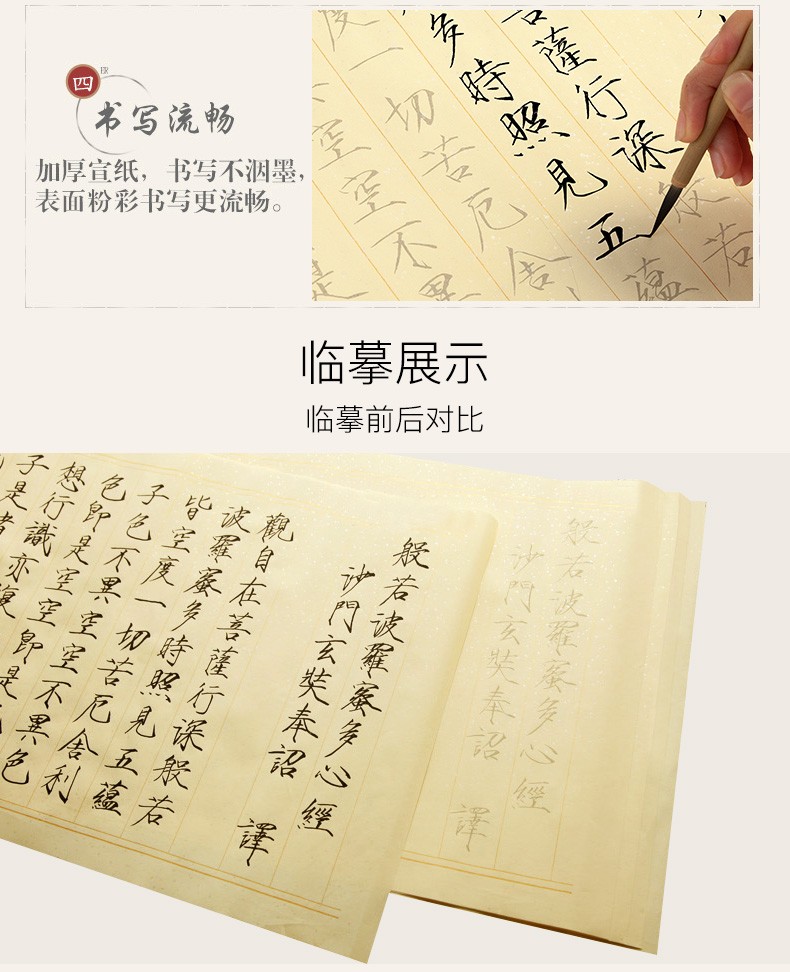 四
书写流畅
加厚宣纸，书写不洇墨，
表面粉彩书写更流畅。
菩薩行深般若
多時照見五蘊
度一切苦厄舍
空空不異
是
临摹展示
临摹前后对比
般若波羅蜜多心經
沙門玄奘奉詔譯
觀自在菩薩行深般若
波羅蜜多時照見五蘊
皆空度一切苦厄舍利
子色不異空空不異色
色即是空空即是
想行識亦復
子是諸
般若波羅蜜多心經
沙門玄奘奉詔譯